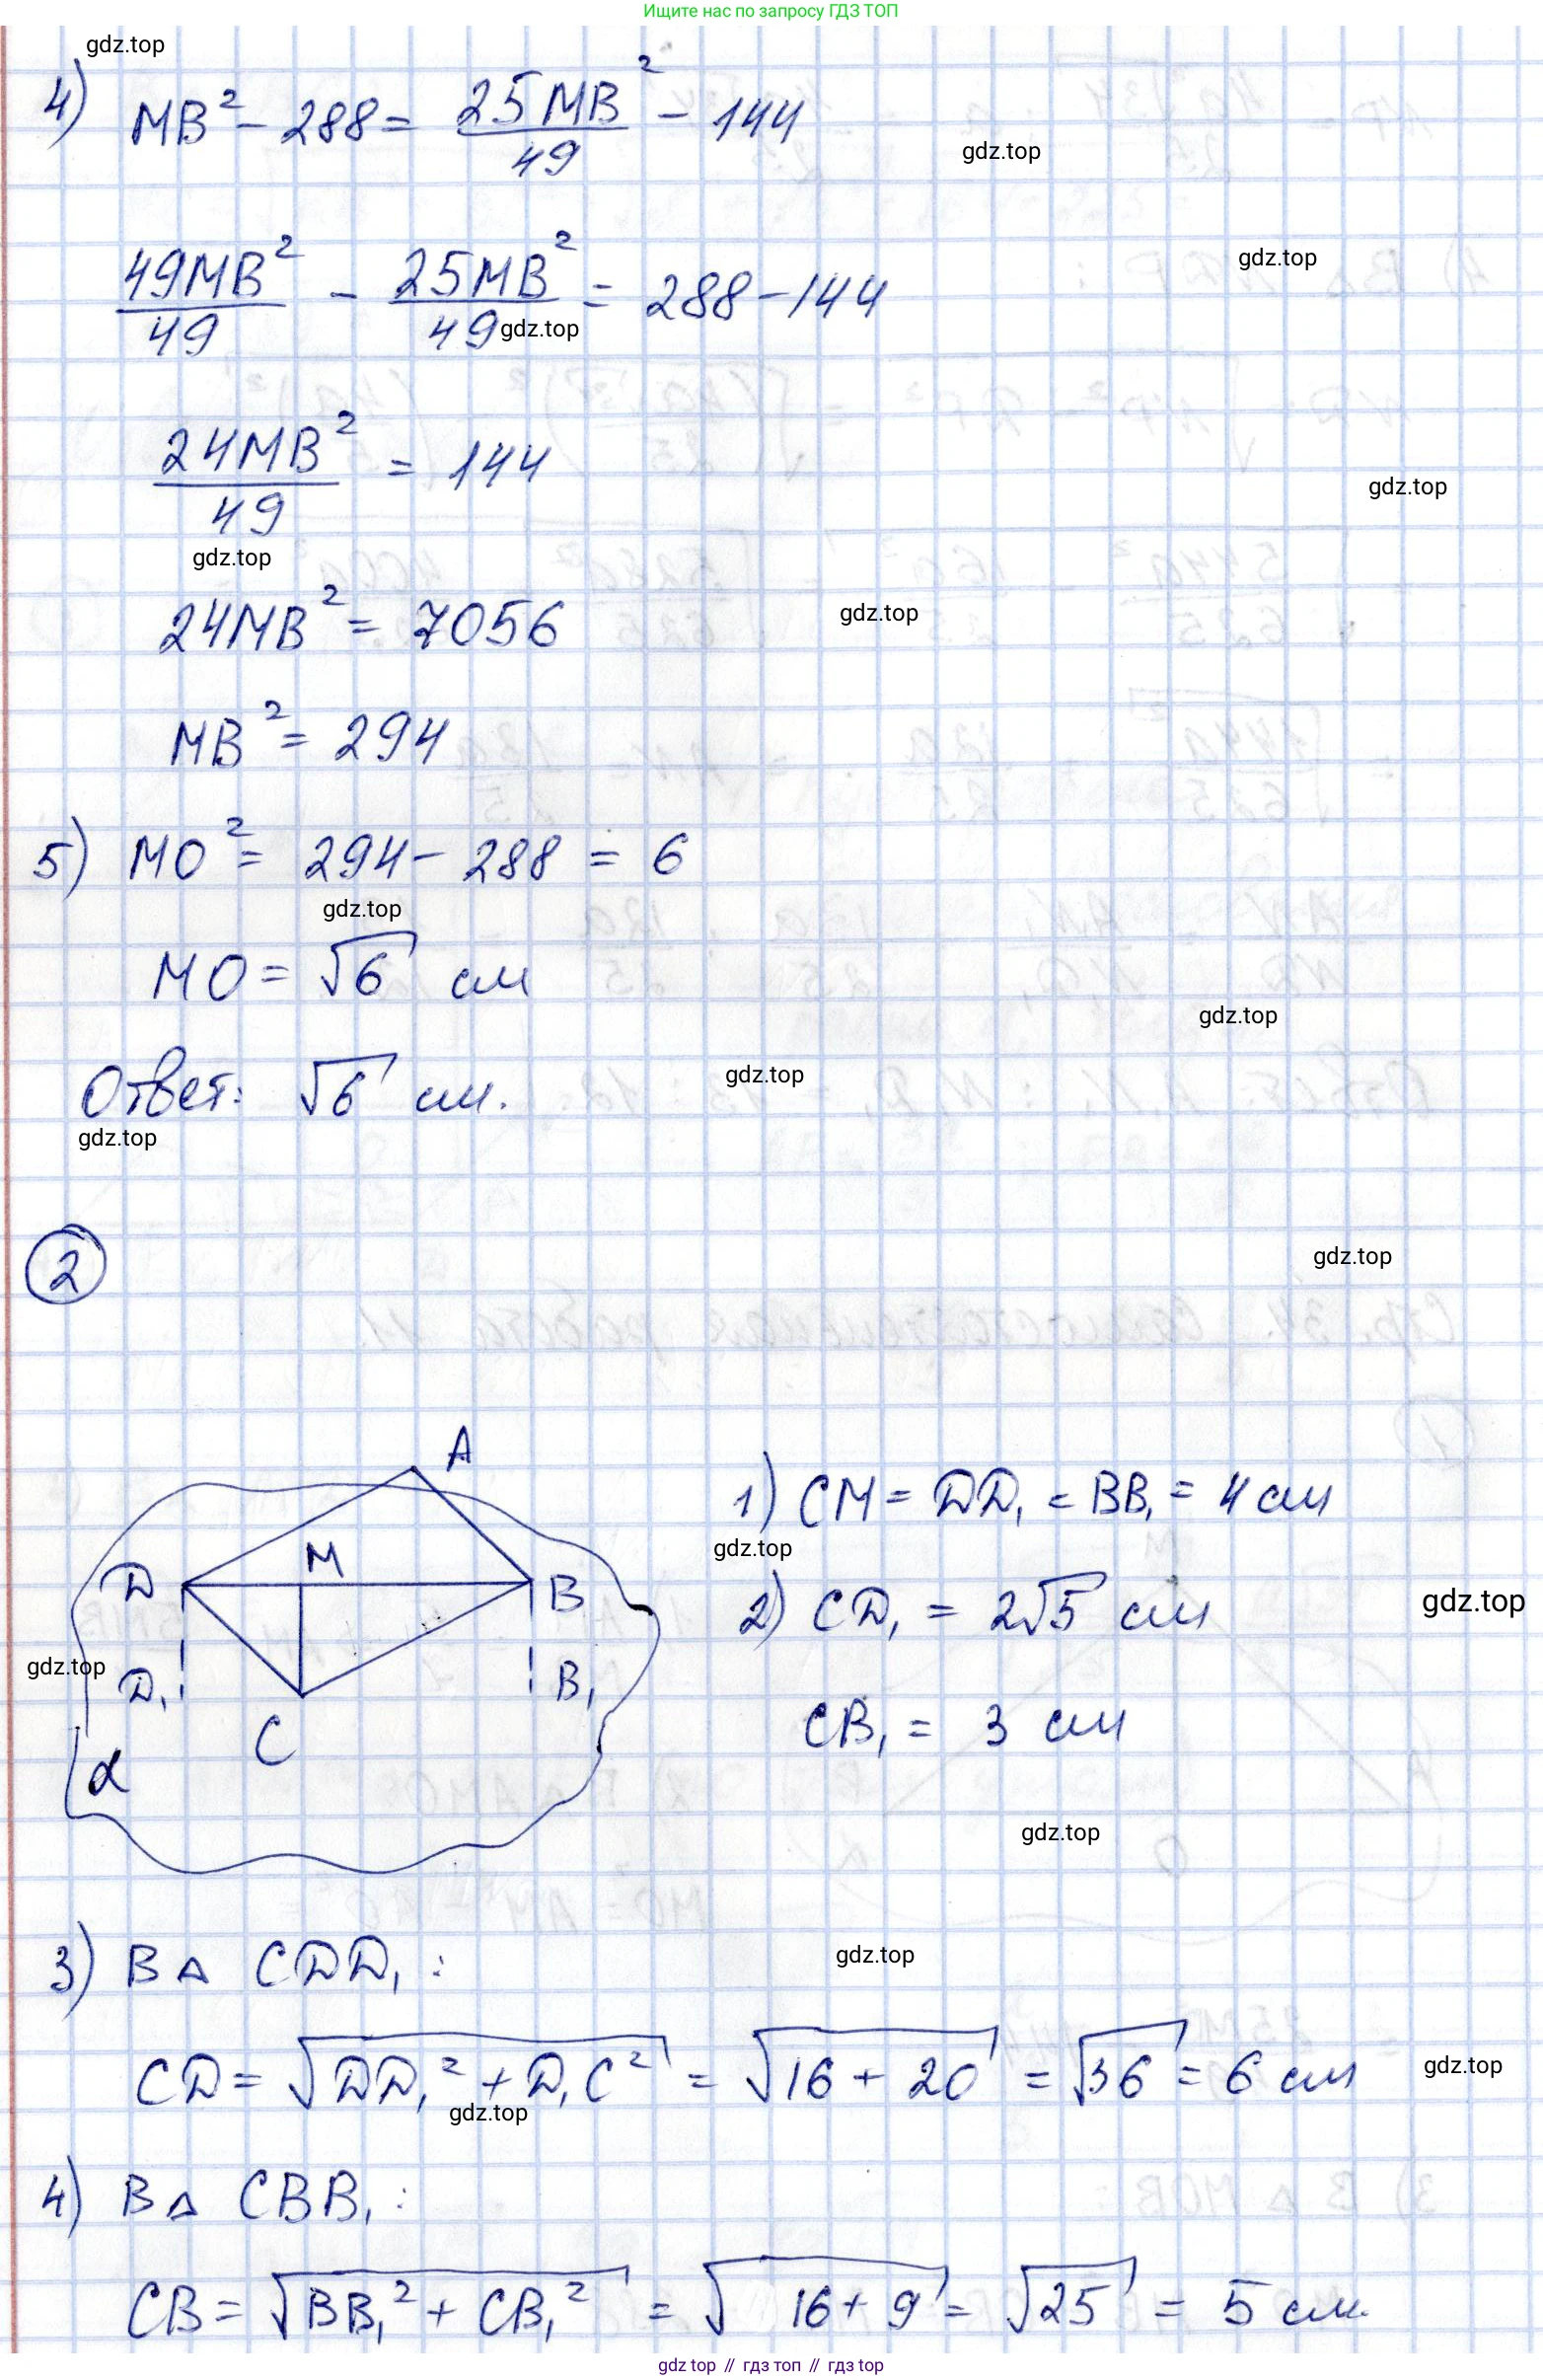 Ищите нас по запросу ГДЗ ТОП
gdz.top
4) MB² - 288 = 25MB²/49 - 144
gdz.top
gdz.top
49MB²/49 - 25MB²/49 = 288 - 144
gdz.top
24MB²/49 = 144
gdz.top
gdz.top
24MB² = 7056
gdz.top
MB² = 294
5) MO² = 294 - 288 = 6
gdz.top
MO = √6 см
gdz.top
Ответ: √6 см.
gdz.top
gdz.top
2
gdz.top
A
M
D
B
D₁
B₁
C
α
gdz.top
1) CM = DD₁ = BB₁ = 4 см
gdz.top
2) CD₁ = 2√5 см
gdz.top
CB₁ = 3 см
gdz.top
3) В △ CDD₁ :
gdz.top
CD = √(DD₁² + D₁C²) = √(16 + 20) = √36 = 6 см
gdz.top
gdz.top
4) В △ CBB₁ :
CB = √(BB₁² + CB₁²) = √(16 + 9) = √25 = 5 см.
gdz.top // гдз топ // гдз top